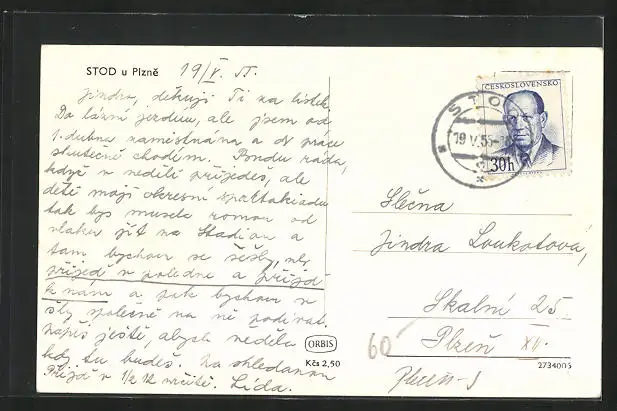 STOD u Plzně
19/V. 55.
Jindro, děkuji Ti za lístek.
Do lázní jerdu, ale jsem od
1. dubna zaměstnána a do práce
skutečně chodím. Budu ráda,
když v neděli přijedeš, ale
děti mají okresní spartakiadu
tak bys musela rovnou od
vlaku jít na Stadion a
tam bychom se sešly, neb
přijeď v poledne a přijď
k nám a pak bychom
šly společně na ně podívat.
Napiš ještě, abych věděla
kdy tu budeš. Na shledanou
Přijď v 1/2 12 určitě. Lída.
ORBIS
Kčs 2,50
ČESKOSLOVENSKO
30h
STOD
19.V.55
Slečna
Jindra Loukotová,
Skalní 25
Plzeň XV.
60
Plzeň-1
273400